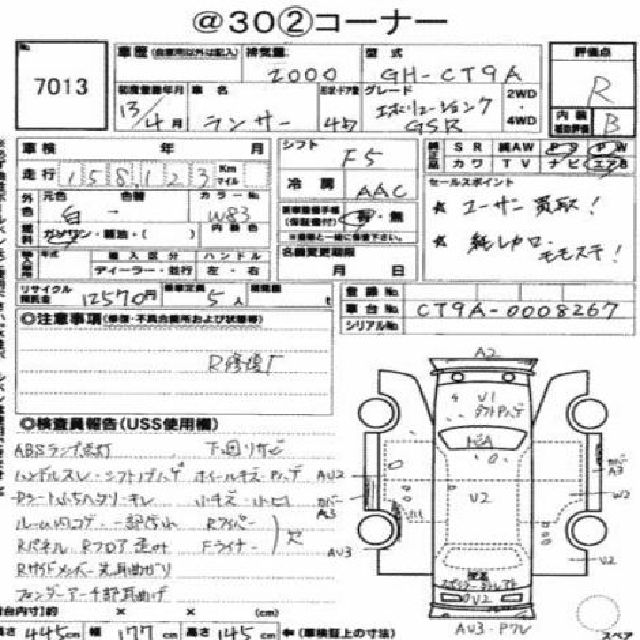 @30②コーナー
No. 7013
車歴 (自家用以外は記入) 排気量 2000 型式 GH-CT9A
評価点 R
初度登録年月 13/4月 車名 ランサー 形状・ドア数 4D グレード エボリューション7 GSR 2WD・4WD
内装 補助評価 B
車検 年 月
シフト F5
純正品 SR 純AW PS PW
カワ TV ナビ エアB
走行 158,123 Km マイル
冷房 AAC
セールスポイント
★ ユーザー買取!
★ 純レカロ・モモステ!
外色 元色 白 色替 - カラーNo. W83
内装色
燃料 ガソリン・軽油・( )
整備手帳 (保証書付) 有・無
年式 輸入区分 ハンドル
ディーラー・並行 左・右
名義変更期限 月 日
リサイクル預託金 12570円 乗車定員 5人 積載量 t
登録No.
車台No. CT9A-0008267
シリアルNo.
◎注意事項 (修復・不具合箇所および状態等)
R修復歴
◎検査員報告 (USS使用欄)
ABSランプ点灯 下回りサビ
ハンドルスレ・シフトノブハゲ ホイールキズ・ハゲ
Rシート小ちハクリ・キレ 小キズ・小凹
ルーム内コゲ・
Rワイパー
Fライナー 欠
Rパネル Rフロア歪み
Rサイドメンバー突き曲がり
A2
U1
U2
AU2
カバーA3
AU3
カバーA3
W2
U2
UV2
AU3・Pワレ
荷台内寸)約 × × (cm)
長さ 445cm 幅 177cm 高さ 145cm ←(車検証上の寸法)
スペア